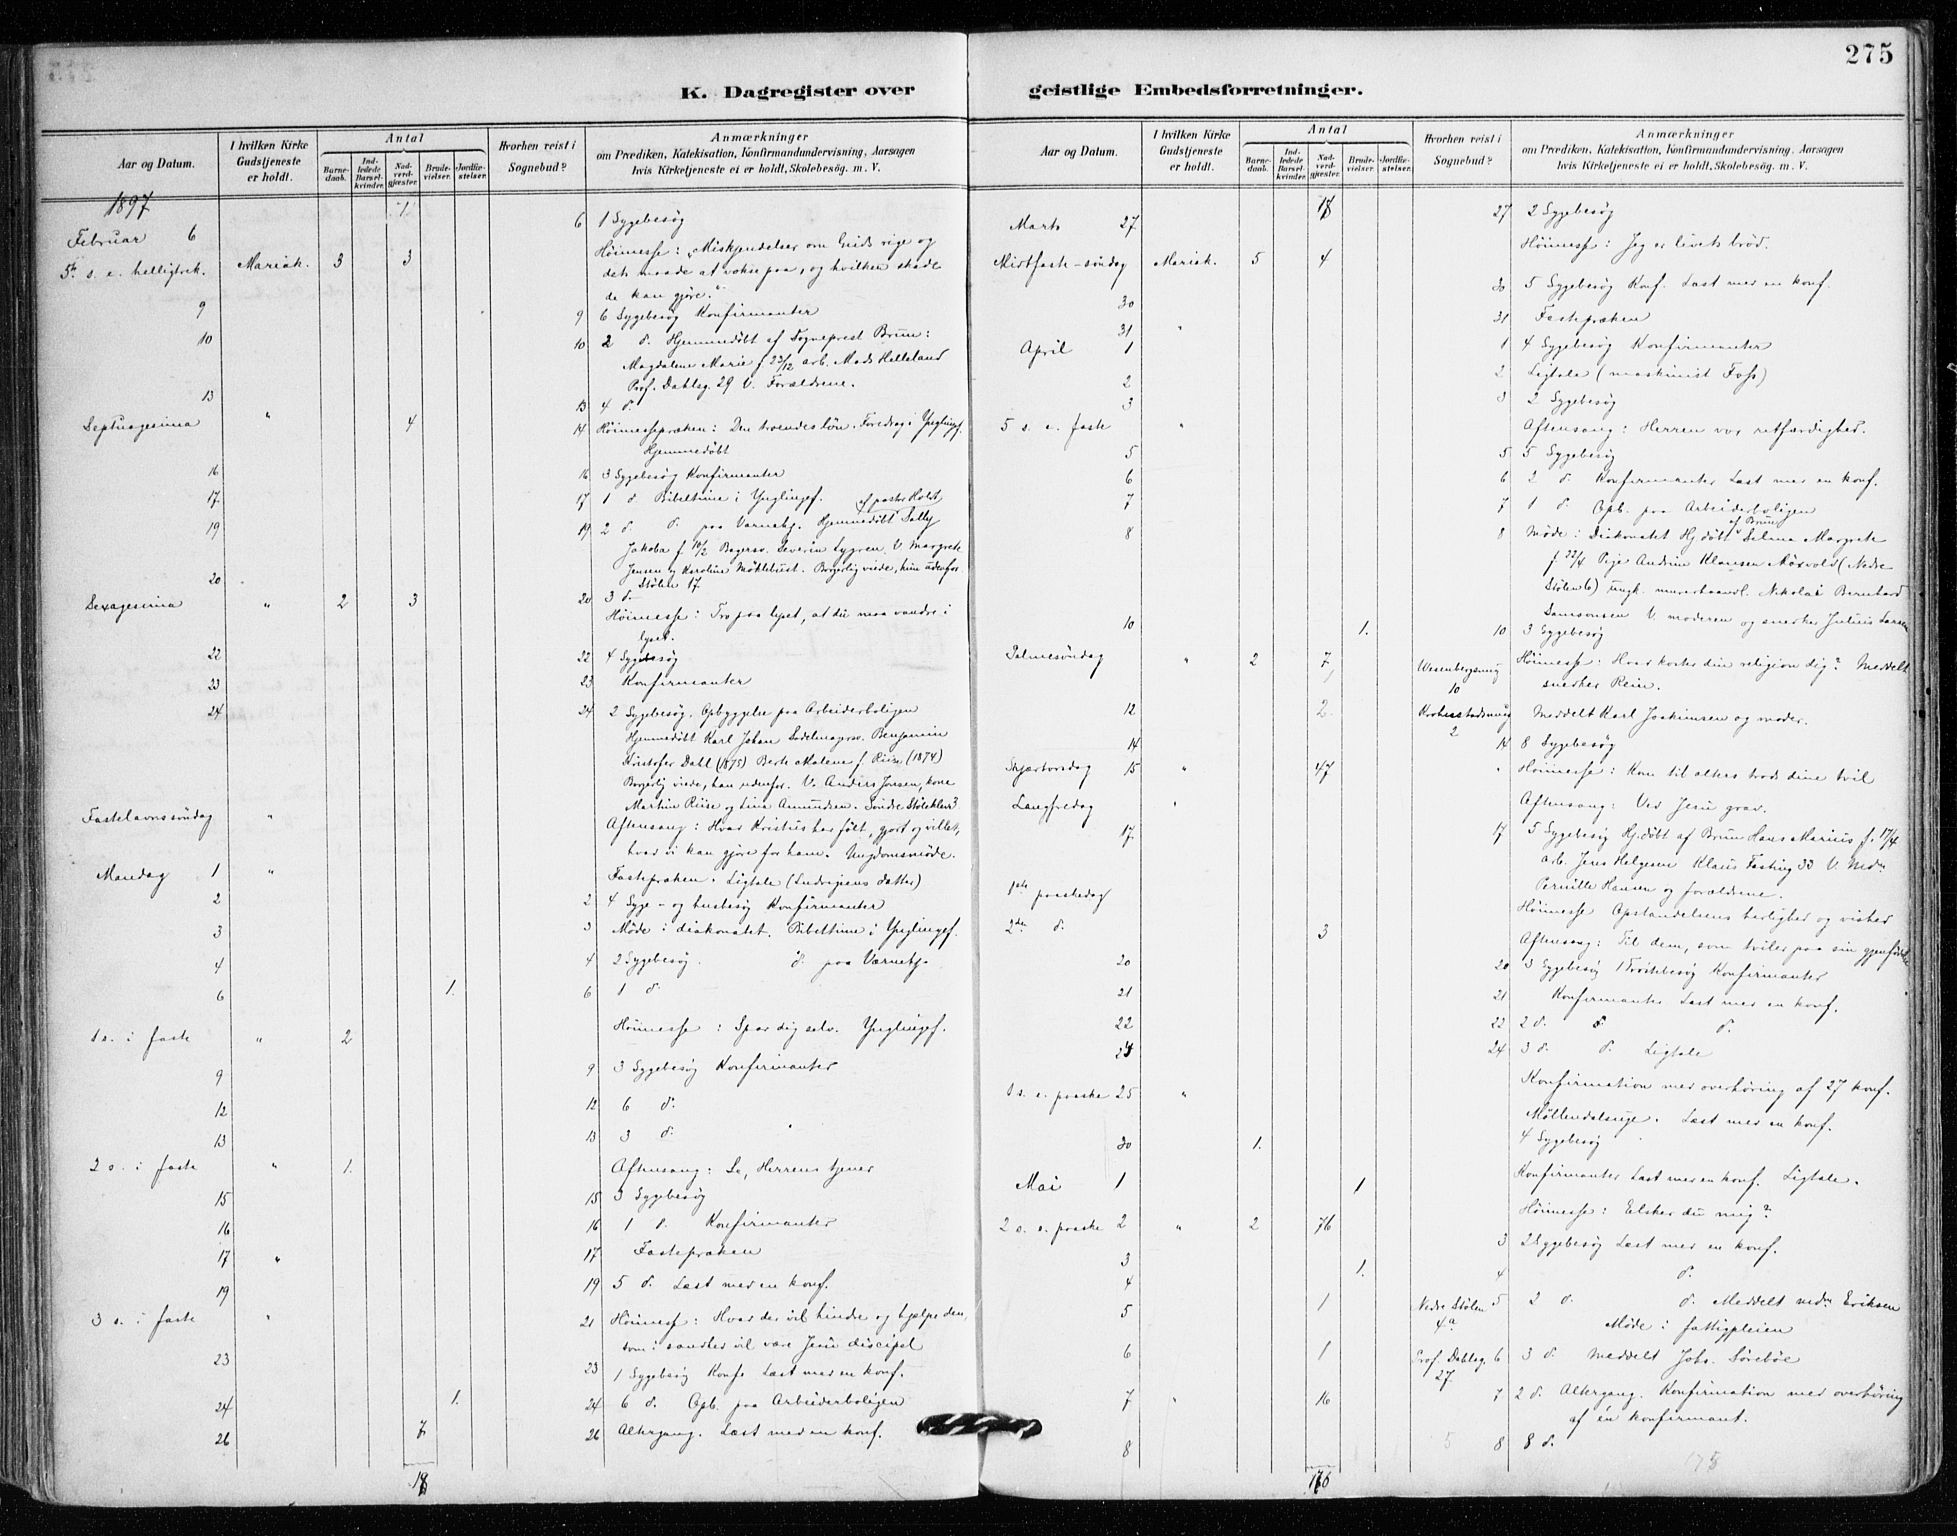 275
K. Dagregister over geistlige Embedsforretninger.
Aar og Datum.
I hvilken Kirke Gudstjeneste er holdt.
Antal
Barnedaab.
Indledede Barselkvinder.
Nadverdgjæster.
Brudevielser.
Jordfæstelser.
Hvorhen reist i Sognebud?
Anmærkninger
om Prædiken, Katekisation, Konfirmandundervisning, Aarsagen
hvis Kirketjeneste ei er holdt, Skolebesøg. m. V.
1897 1.
Februar 6 6 1 Sygebesøg
5te s. e. helligtrek. Mariak. 3 3 Høimesse: "Miskjendelser om Guds rige og
dets maade at vokse paa, og hvilken skade
de kan gjøre."
9 9 6 Sygebesøg Konfirmanter
10 10 2 d. Hjemmedøbt af Sogneprest Brun:
Magdalene Marie f 23/12 arb. Mads Helleland
Prof. Dahlsg. 29 V. Forældrene.
13 13 4 d.
Septuagesima " 4 14 Høimessepræken: Den troendes løn. Foredrag i Ynglingef.
Hjemmedøbt
16 16 3 Sygebesøg Konfirmanter
17. 17 1 d. Bibeltime i Ynglingef. af pastor Holst
19 19 2 d. d. paa Værnehj. Hjemmedøbt Sally
Jakoba f. 10/2 Bagersv. Severin Sygren. V. Margrete
Jensen og Karoline Møklebust. Borgerlig viede, hun udenfor.
Stølen 17.
20 20 3 d.
Sexagesima " 2 3 Høimesse: Tro paa lyset, at du maa vandre i
lyset.
22 22 4 Sygebesøg
23 23 Konfirmanter
24 24 2 Sygebesøg. Opbyggelse paa Arbeiderboligen
Hjemmedøbt Karl Johan Sadelmagersv. Benjamin
Kristofer Dahl (1875) Berte Malene f. Riise (1874)
Borgerlig viede, han udenfor. V. Anders Jonsen, kone
Martin Riise og Lina Amundsen. Søndre Stølekleiv 3
Fastelavnssøndag " Aftensang: Hvad Kristus har følt, gjort og villet,
hvad vi kan gjøre for ham. Ungdomsmøde.
Mandag 1 " Fastepræken. Ligtale
2 2 4 Syge- og husbesøg Konfirmanter
3 3 Møde i diakonatet. Bibeltime i Ynglingef.
4 4 2 Sygebesøg. d. paa Værnehj.
6 1. 6 1 d.
1 s. i faste " 2 Høimesse: Spar dig selv. Ynglingef.
9 9 3 Sygebesøg Konfirmanter
12 12 6 d.
13 13 3 d.
2 s. i faste " 1. Aftensang: Se, Herrens tjener
15 15 3 Sygebesøg
16 16 1 d. Konfirmanter
17 " 17 Fastepræken
19 19 5 d. Læst med en konf.
3 s. i faste " 21 Høimesse: Hvad der vil hindre og hjælpe den,
som i sandhed vil være Jesu discipel
23 23 1 Sygebesøg Konf. Læst med en konf.
24 1. 24 6 d. Opb. paa Arbeiderboligen
26 7 26 Altergang. Læst med en konf.
18
Aar og Datum.
I hvilken Kirke Gudstjeneste er holdt.
Antal
Barnedaab.
Indledede Barselkvinder.
Nadverdgjæster.
Brudevielser.
Jordfæstelser.
Hvorhen reist i Sognebud?
Anmærkninger
om Prædiken, Katekisation, Konfirmandundervisning, Aarsagen
hvis Kirketjeneste ei er holdt, Skolebesøg. m. V.
18
Marts 27 27 2 Sygebesøg
Midtfaste-søndag Mariak. 5 4 Høimesse: Jeg er livets brød.
30 30 5 Sygebesøg Konf. Læst med en konf.
31 " 31 Fastepræken
April 1 1 4 Sygebesøg Konfirmanter
2 2 Ligtale (maskinist Foss)
3 3 2 Sygebesøg
5 s. i faste " Aftensang: Herren vor retfærdighed.
5 5 5 Sygebesøg
6 6 2 d. Konfirmanter Læst med en konf.
7 7 1 d. Opb. paa Arbeiderboligen
8 8 Møde i Diakonatet Hj.døbt af Brun Selma Margrete
f. 22/4 Pige Andrine Klausen Mosvold (Nedre
Stølen 6) ungk. murerhaandl. Nikolai Bernhard
Samsonsen V. moderen og snedker Julius Larsen
10 1. 10 3 Sygebesøg
Palmesøndag " 2 7 Høimesse: Hvad koster din religion dig? Meddelt
1 Wesenbergsmug 10 snedker Rein.
12 2 Krohnstadsmug 2 Meddelt Karl Joakimsen og moder.
14 14 8 Sygebesøg
Skjærtorsdag 15 " 47 " Høimesse: Kom til alters trods dine tvil
Langfredag " Aftensang: Ved Jesu grav.
17. 17 5 Sygebesøg Hj.døbt af Brun Hans Marius f. 17/4
arb. Jens Helgesen Klaus Fasting 33 V. Mdm
Pernille Hansen og forældrene.
1ste paaskedag Høimesse Opstandelsens herlighed og vished
2den d. 3 Aftensang: Til dem, som tviler paa sin gjenfødelse
20 20 3 Sygebesøg 1 Trøstebesøg Konfirmanter
21 21 Konfirmanter Læst med en konf.
22 22 2 d. d. d.
24 24 3 d. d. Ligtale
1 s. e. paaske 25 " Konfirmation med overhøring af 27 konf.
Møllendalsuge. Læst med en konf.
30 1. 4 Sygebesøg
Mai 1 1 Konfirmanter Læst med en konf. Ligtale.
2 s. e. paaske 2 " 2 76 Høimesse: Elsker du mig?
3 3 2 Sygebesøg Læst med en konf.
4 1. 4 d.
5 1 Nedre Stølen 4a 5 2 d. d. Meddelt mdm Eriksen
Møde i fattigpleien
6 1 Prof. Dahlsg. 27 6 3 d. Meddelt Johs. Sørebøe
7 " 16 7 2 d. Altergang. Konfirmation med overhøring
af én konfirmant.
8 8 8 d.
176 175